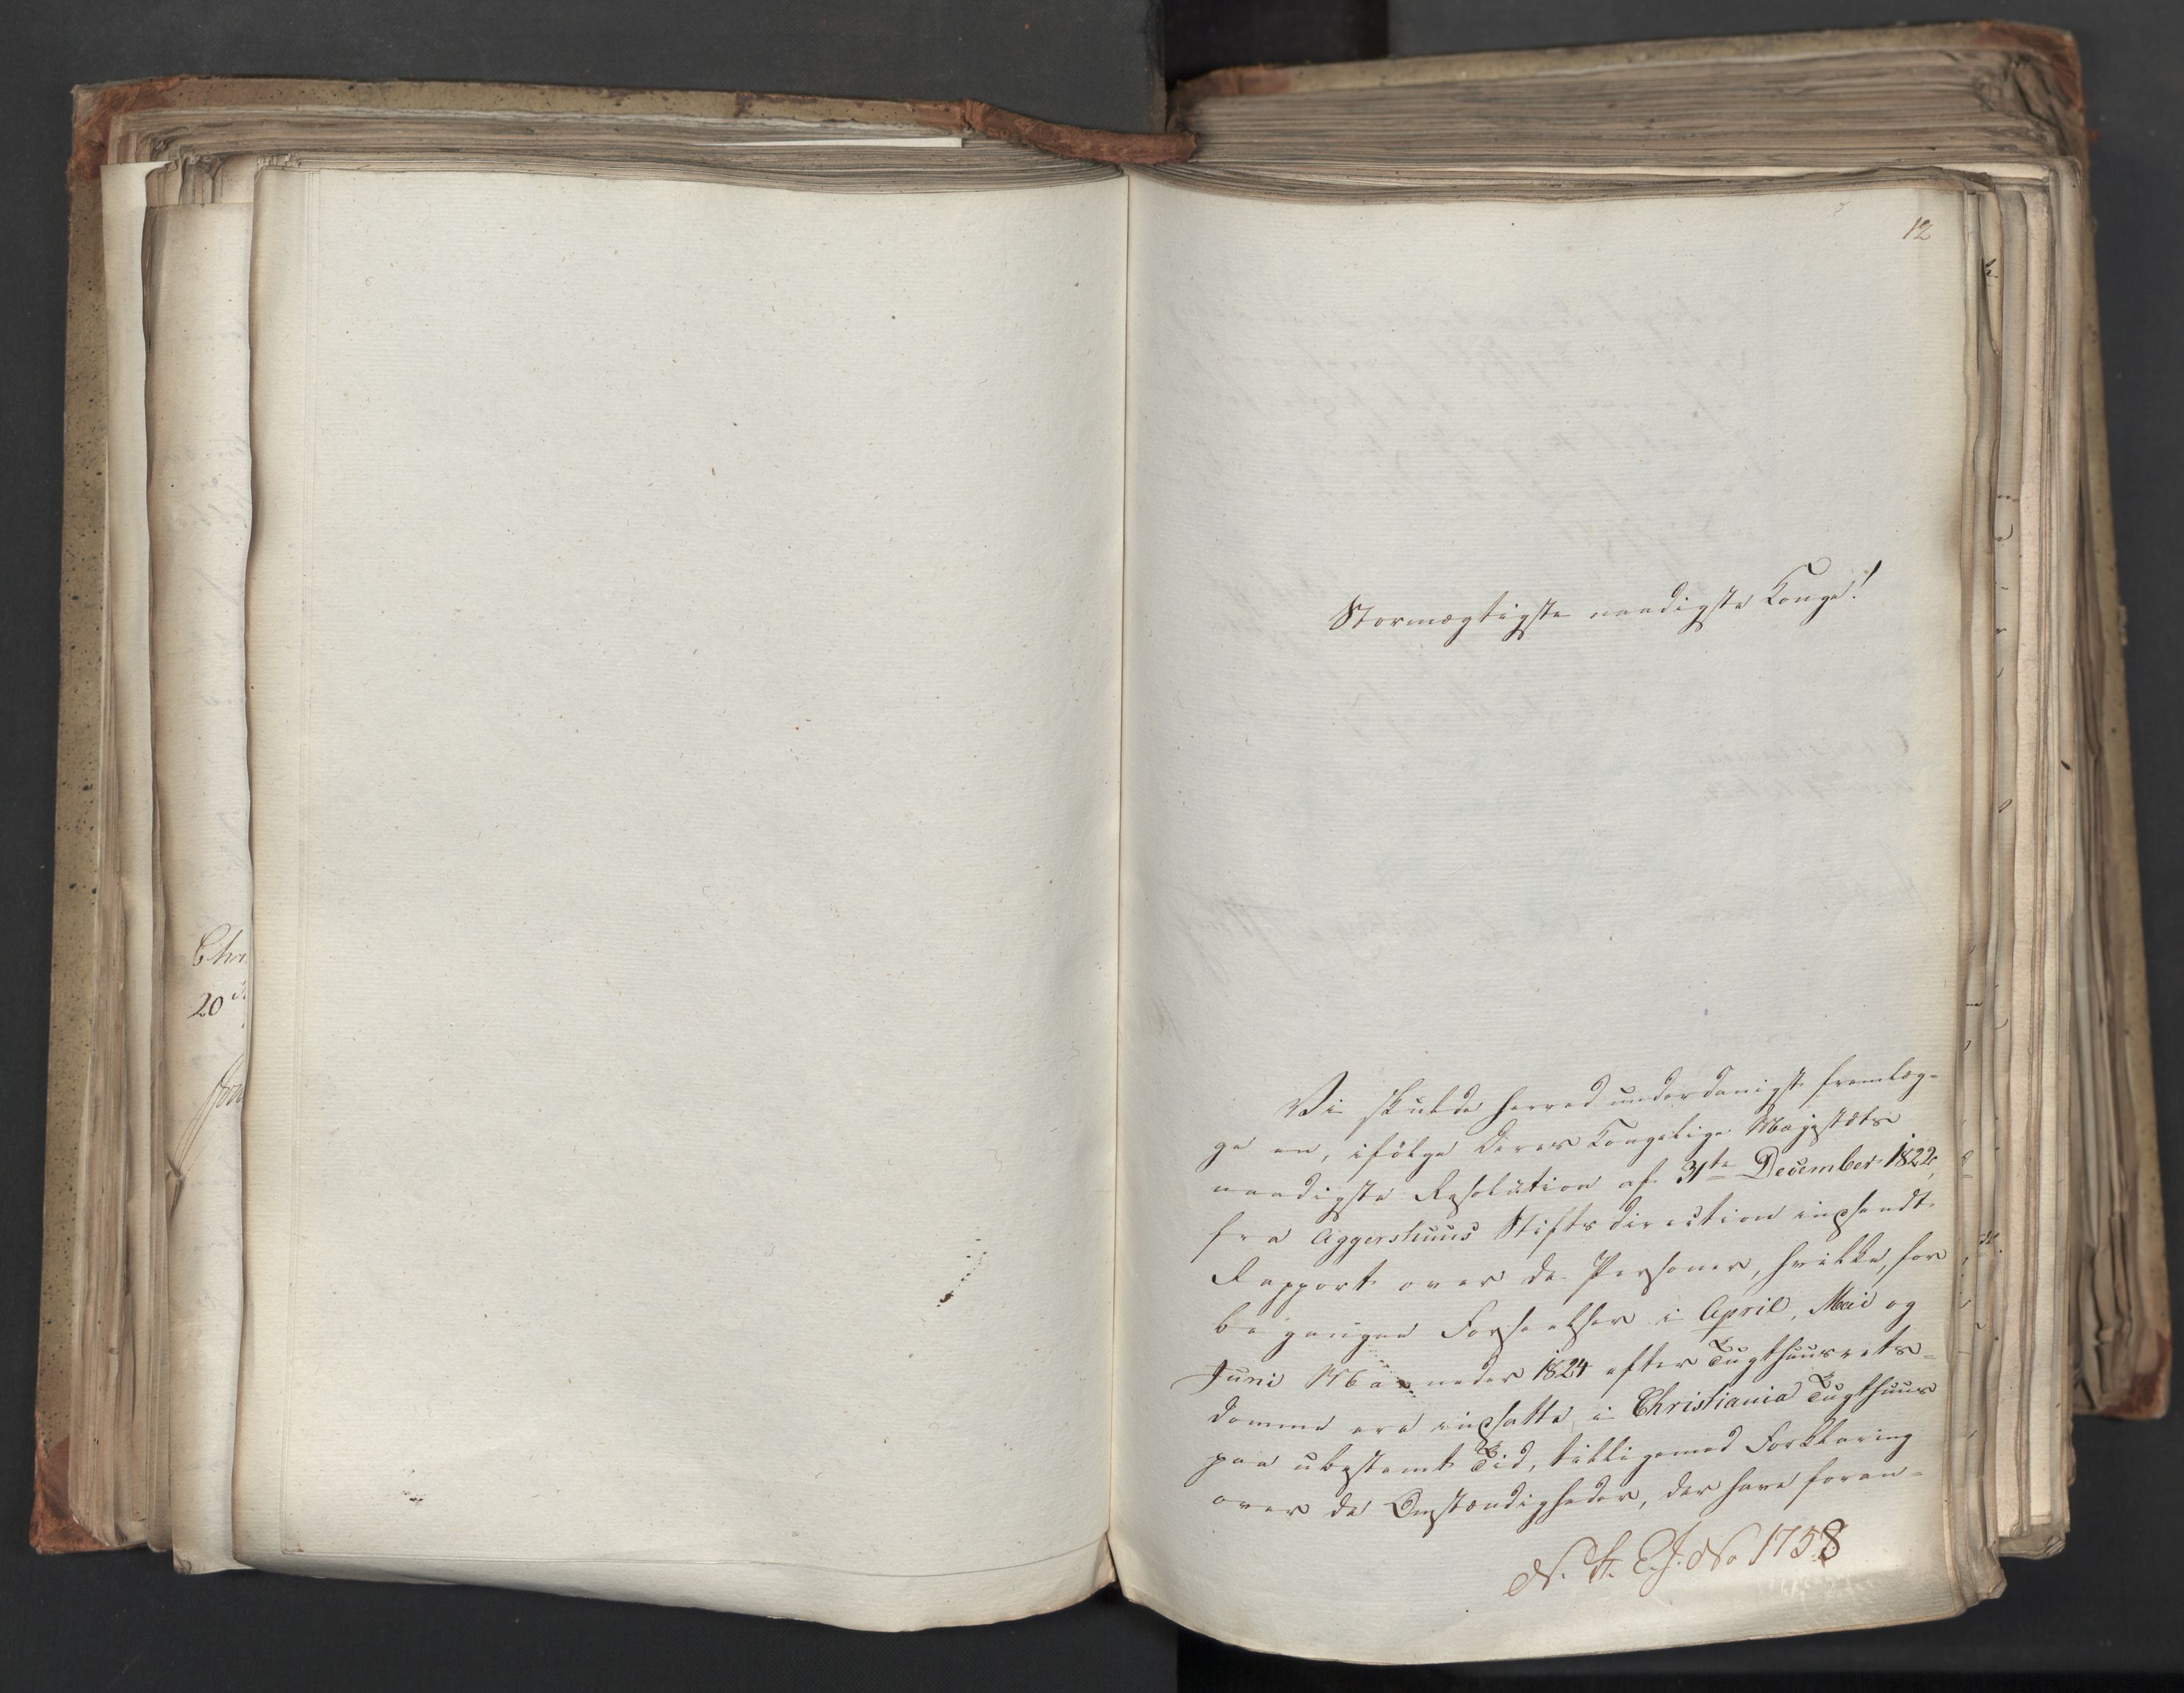 12
Stormægtigste naadigste Konge!
Vi skulde herved underdanigst fremlæg-
ge en, ifölge Deres Kongelige Majestæts
naadigste Resolution af 31te December 1822,
fra Aggershuus Stiftsdirection indsendt
Rapport over de Personer, hvilke, for
begangne Forseelser i April, Mai og
Juni Maaneder 1824 efter Tugthuusrets-
domme ere indsatte i Christiania Tugthuus
paa ubestemt Tid, tilligemed Forklaring
over de Omstændigheder, der have foran-
N. St. E. J. No 1758
Chri
20